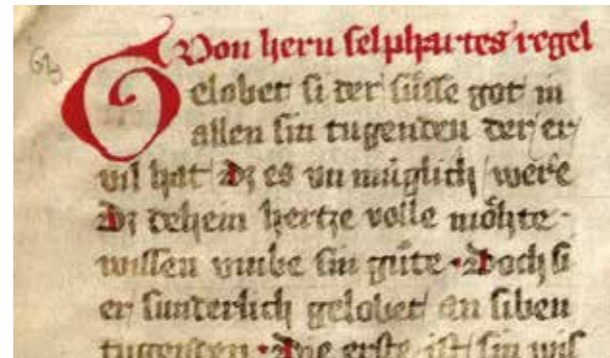 Von hern selphartes regel
Gelobet si der süsse got in
allen sin tugenden der er
vil hat dz es vn müglich were
dz dehein hertze volle möhte
wissen vmbe sin güte. Doch si
er sunderlich gelobet an siben
tugenden. Die erste ist sin wis